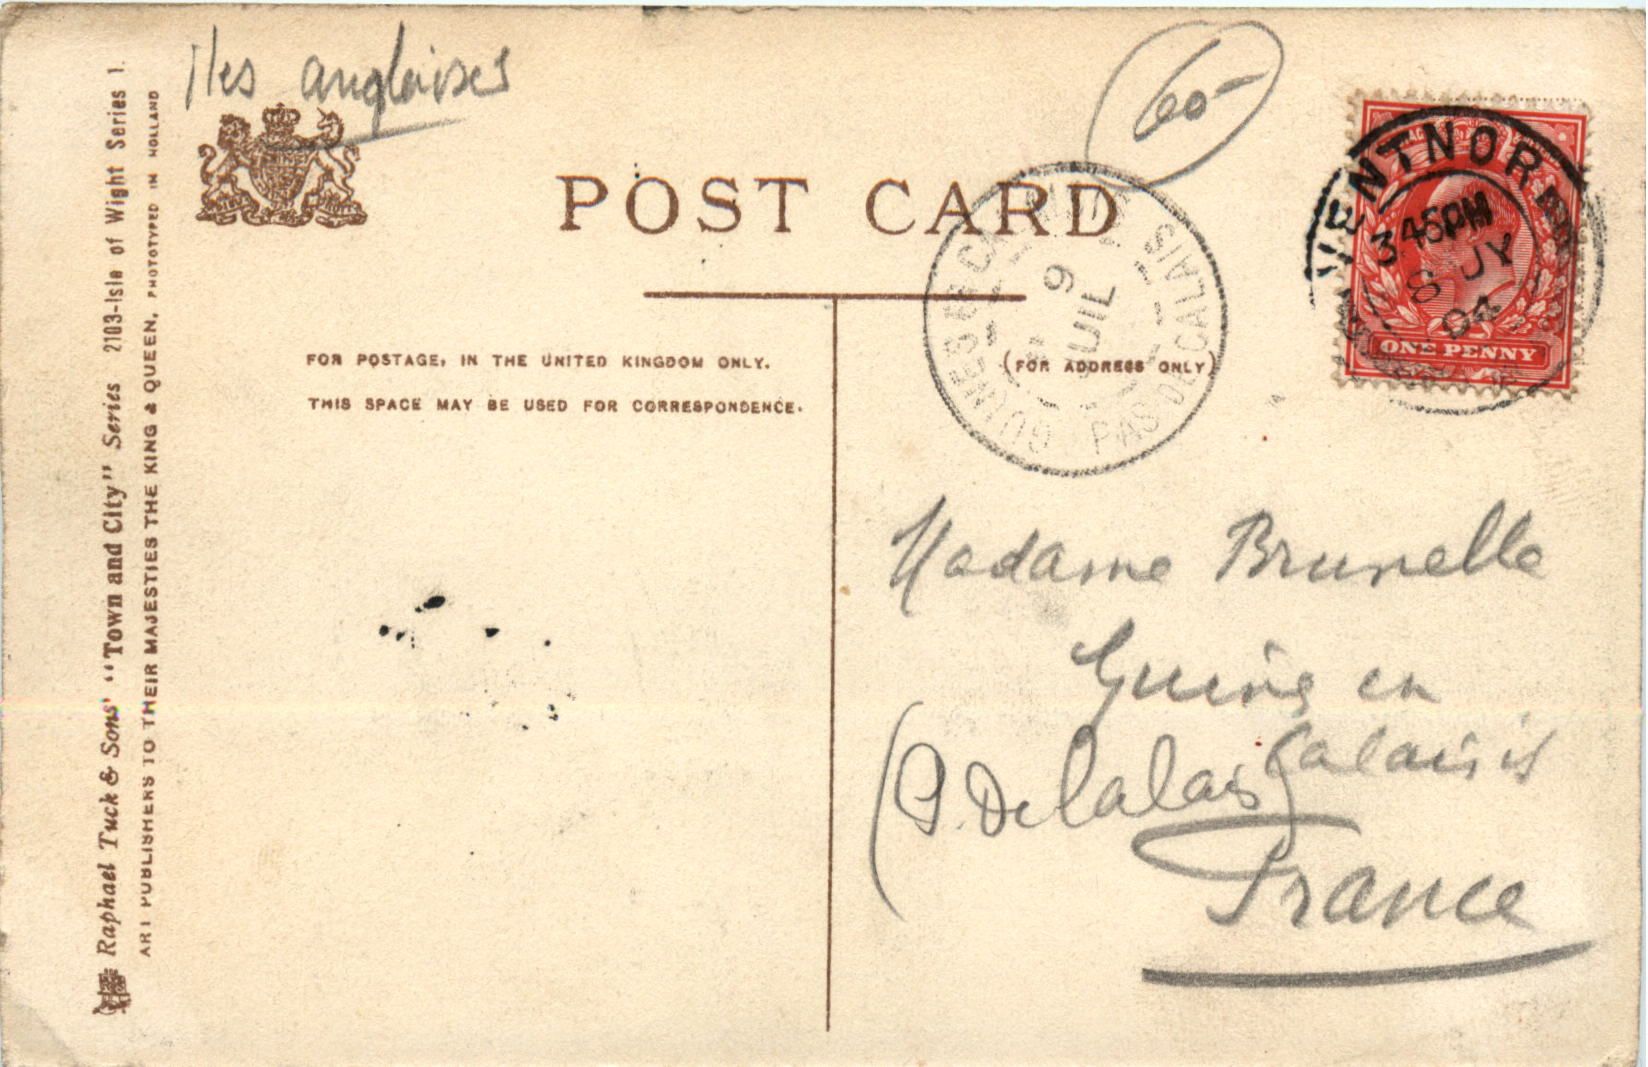 Iles anglaises
60-
POST CARD
FOR POSTAGE, IN THE UNITED KINGDOM ONLY.
THIS SPACE MAY BE USED FOR CORRESPONDENCE.
(FOR ADDRESS ONLY)
VENTNOR
3 45PM
8 JY
04
ONE PENNY
GUINES
9
JUIL
PAS DE CALAIS
Madame Brunelle
Guine en
Calaisis
(P. De Calais)
France
Raphael Tuck & Sons' "Town and City" Series 2103-Isle of Wight Series 1.
ART PUBLISHERS TO THEIR MAJESTIES THE KING & QUEEN, PHOTOTYPED IN HOLLAND